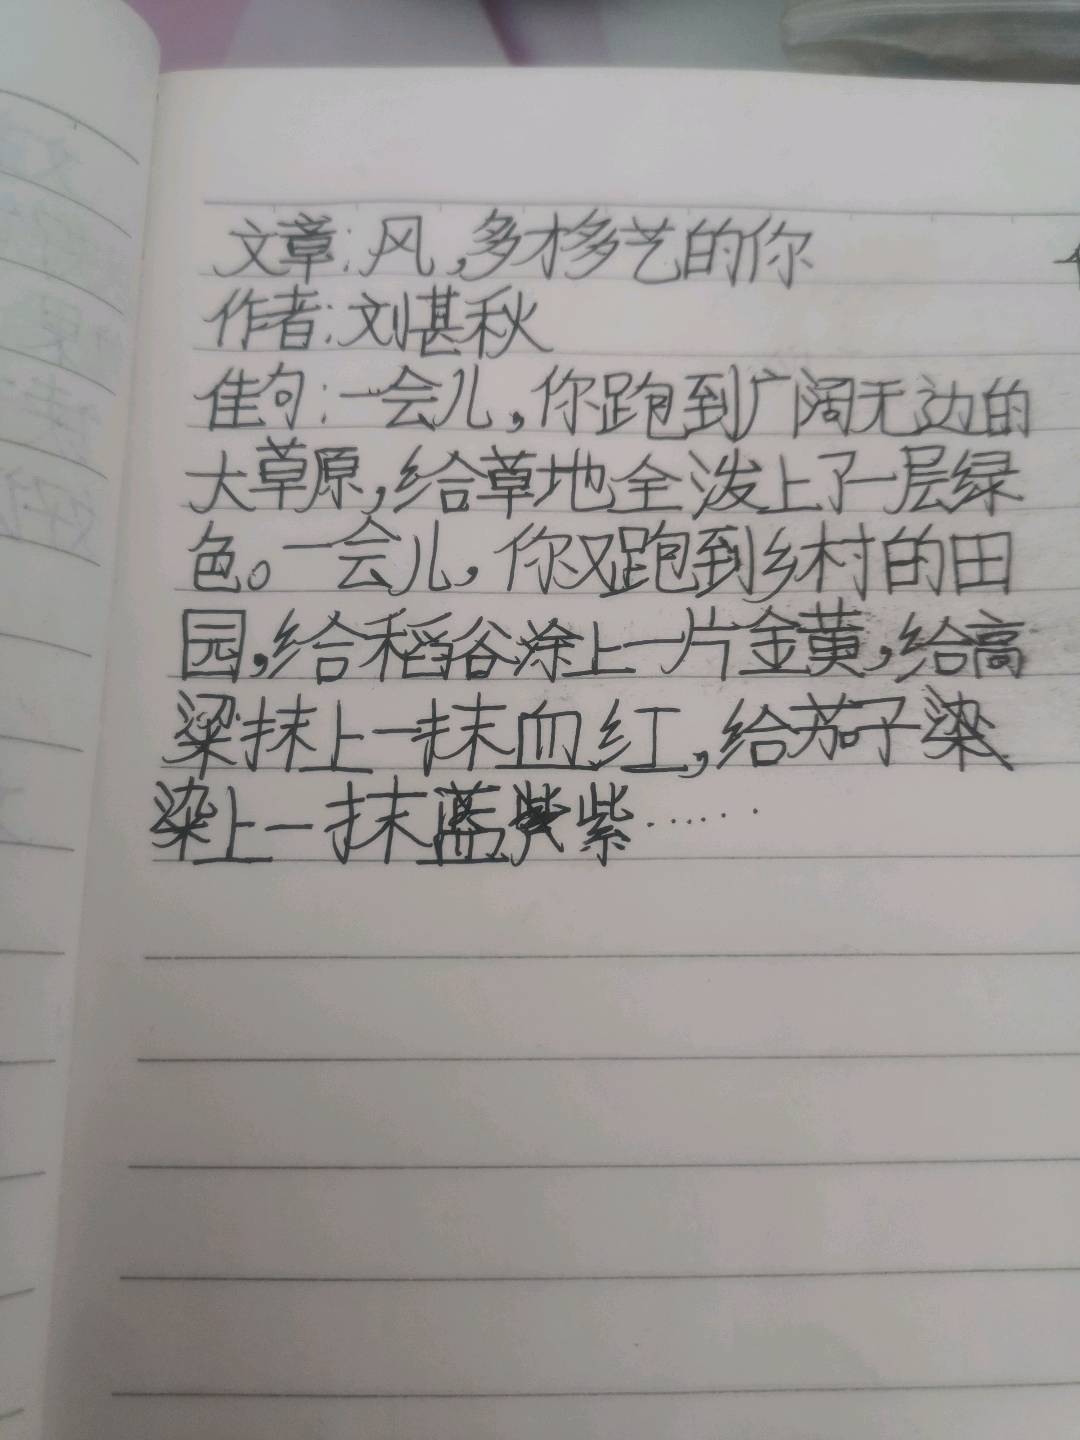 文章:风,多才多艺的你
作者:刘湛秋
佳句:一会儿,你跑到广阔无边的
大草原,给草地全泼上了一层绿
色。一会儿,你又跑到乡村的田
园,给稻谷涂上一片金黄,给高
粱抹上一抹血红,给茄子
染上一抹蓝紫……